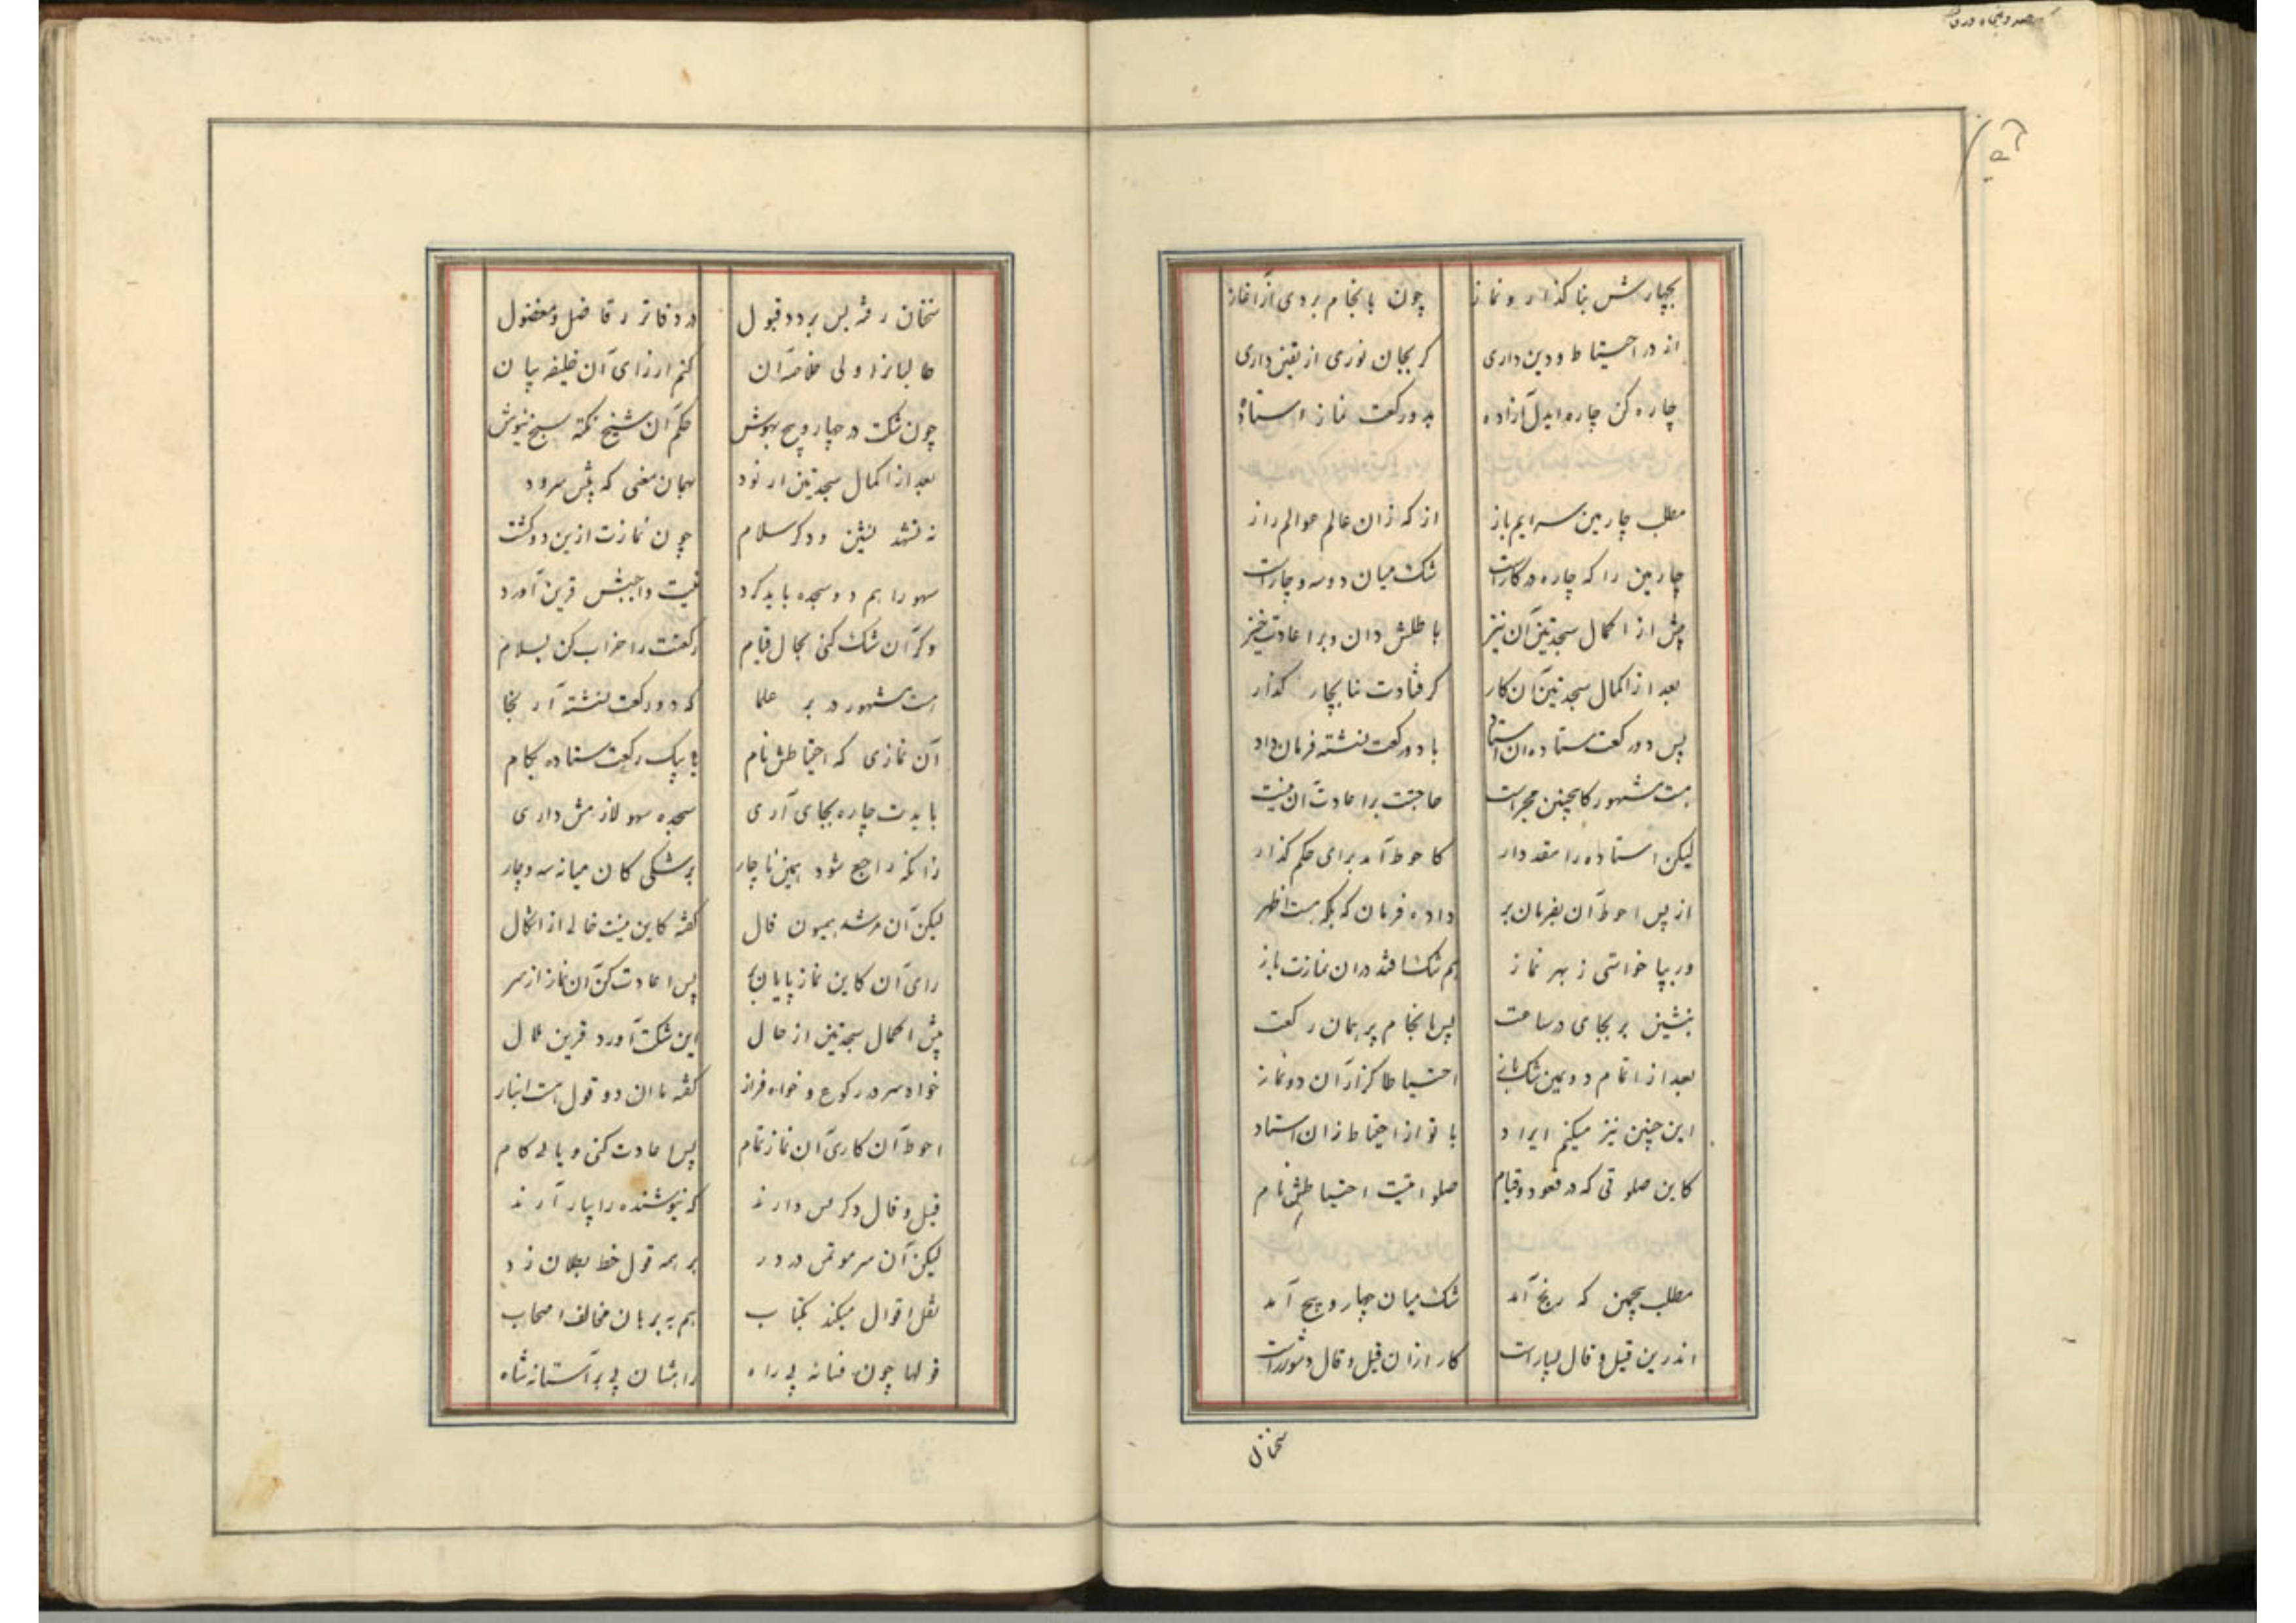 بچهارش بنا گذار و نماز چون بانجام بردی از آغاز
از در احتیاط و دین داری کر بجان نوری از یقین داری
چاره کن چاره ایدل آزاده بدو رکعت نماز استاده
مطلب چارمین سرایم باز از که زان عالم عوالم راز
چارمین را که چاره در کارست شک میان دو و سه و چارست
پیش از اکمال سجدتین آن نیز باطلش دان و بر اعادت خیز
بعد از اکمال سجدتین آن کار کر فتادت بنا بچار گذار
پس دو رکعت ستاده با دو رکعت نشسته فرمان داد
هست مشهور کاینچنین مجراست حاجتت بر اعادت آن نیست
لیکن استاده را مقدم دار کاحوط آمد برای حکم گذار
از پس احوط آن بفرمان بر داده فرمان که بلکه هست اظهر
ور بپا خواستی ز بهر نماز هم شک افتد در ان نمازت باز
بنشین بر بجای در ساعت پس بانجام بر همان رکعت
بعد از اتمام دویمین شک احتیاطا کزار آن دو نماز
این چنین نیز میکنم ایراد با تو از احتیاط زان استاد
کاین صلوتی که در قعود و قیام صلواتیست احتیاطش نام
مطلب پنجمین که رنج آمد شک میان چهار و پنج آمد
اندرین قیل و قال بسیارست کار ازان قیل و قال دشوارست
سخنان
سخنان رفته بس برد و قبول در دفاتر ز فاضل و مفضول
طالبانرا ولی خلاصه آن کنم از رای آن خلیفه بیان
چون شکت در چهار و پنج بهوش حکم آن شیخ نکته سنج نیوش
بعد از اکمال سجدتین ار بود بهمان معنی که پیش سرود
به تشهد نشین و دکر سلام چون نمازت ازین دو کشت
سهو را هم دو سجده باید کرد نیت واجبش قرین آورد
ور آن شک کنی بحال قیام رکعتت را خراب کن بسلام
هست مشهور در بر علما که دو رکعت نشسته آر بجا
آن نمازی که احتیاطش نام یا بیک رکعت ستاده بکام
بایدت چاره بجای آری سجده سهو لازمش داری
زانکه راجع شود همین ناچار بر شکی کان میانه سه و چار
لیکن آن مرشد همیون فال گفته کاین نیست خالی از اشکال
رای آن کاین نماز پایان پس اعادت کن آن نماز از سر
پیش اکمال سجدتین از حال این شکت آورد قرین ملال
خواه سر در رکوع و خواه فراز گفته دو قول هست
احوط آن کاری آن نماز تمام پس اعادت کنی و یابی کام
قیل و قال دکر بس دارند که نیوشنده را بیازارند
لیکن آن سر بر همه قول خط بطلان زد
نقل اقوال میکند بکتاب هم به برهان مخالف اصحاب
قولها چون فسانه بی راه راهشان بی بر آستانه شاه